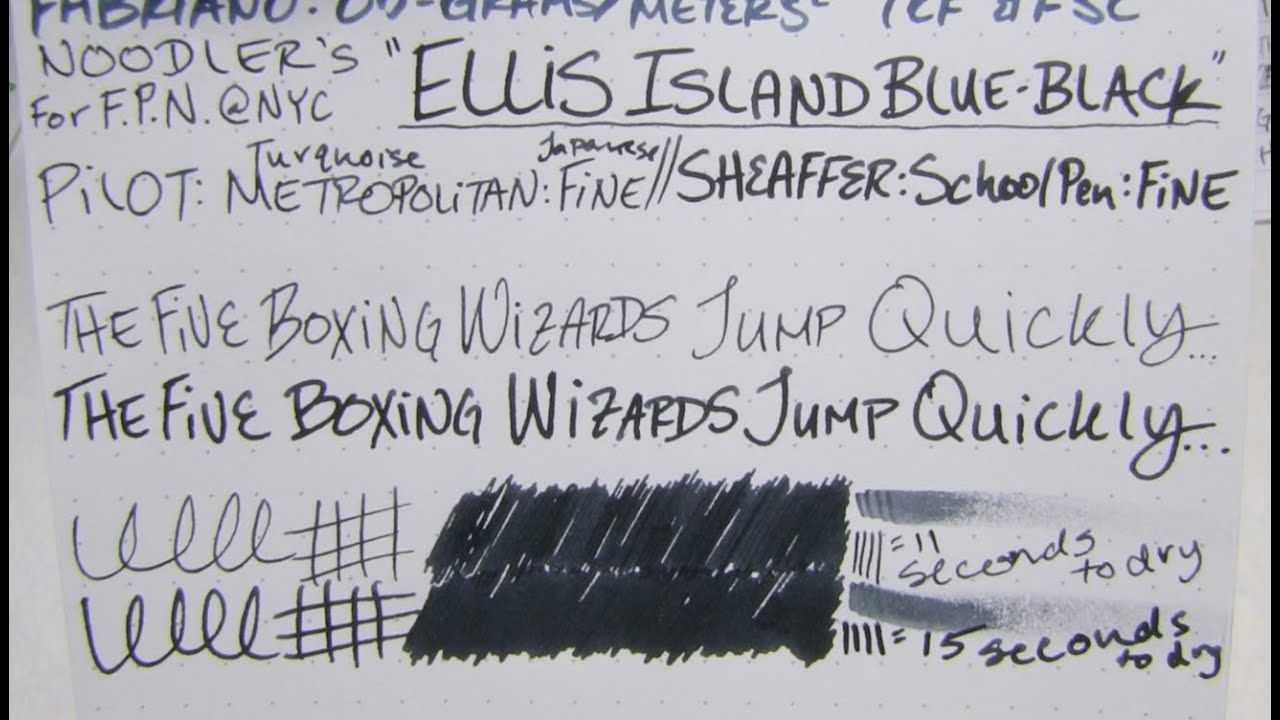 FABRIANO: GRAMS/METERS² FSC
NOODLER'S "ELLIS ISLAND BLUE-BLACK"
For F.P.N. @NYC
Turquoise Japanese
PILOT: METROPOLITAN: FINE // SHEAFFER: School Pen: FINE
THE FIVE BOXING WIZARDS JUMP QUICKLY...
THE FIVE BOXING WIZARDS JUMP QUICKLY...
= 11
seconds
to dry
= 15 seconds
to dry